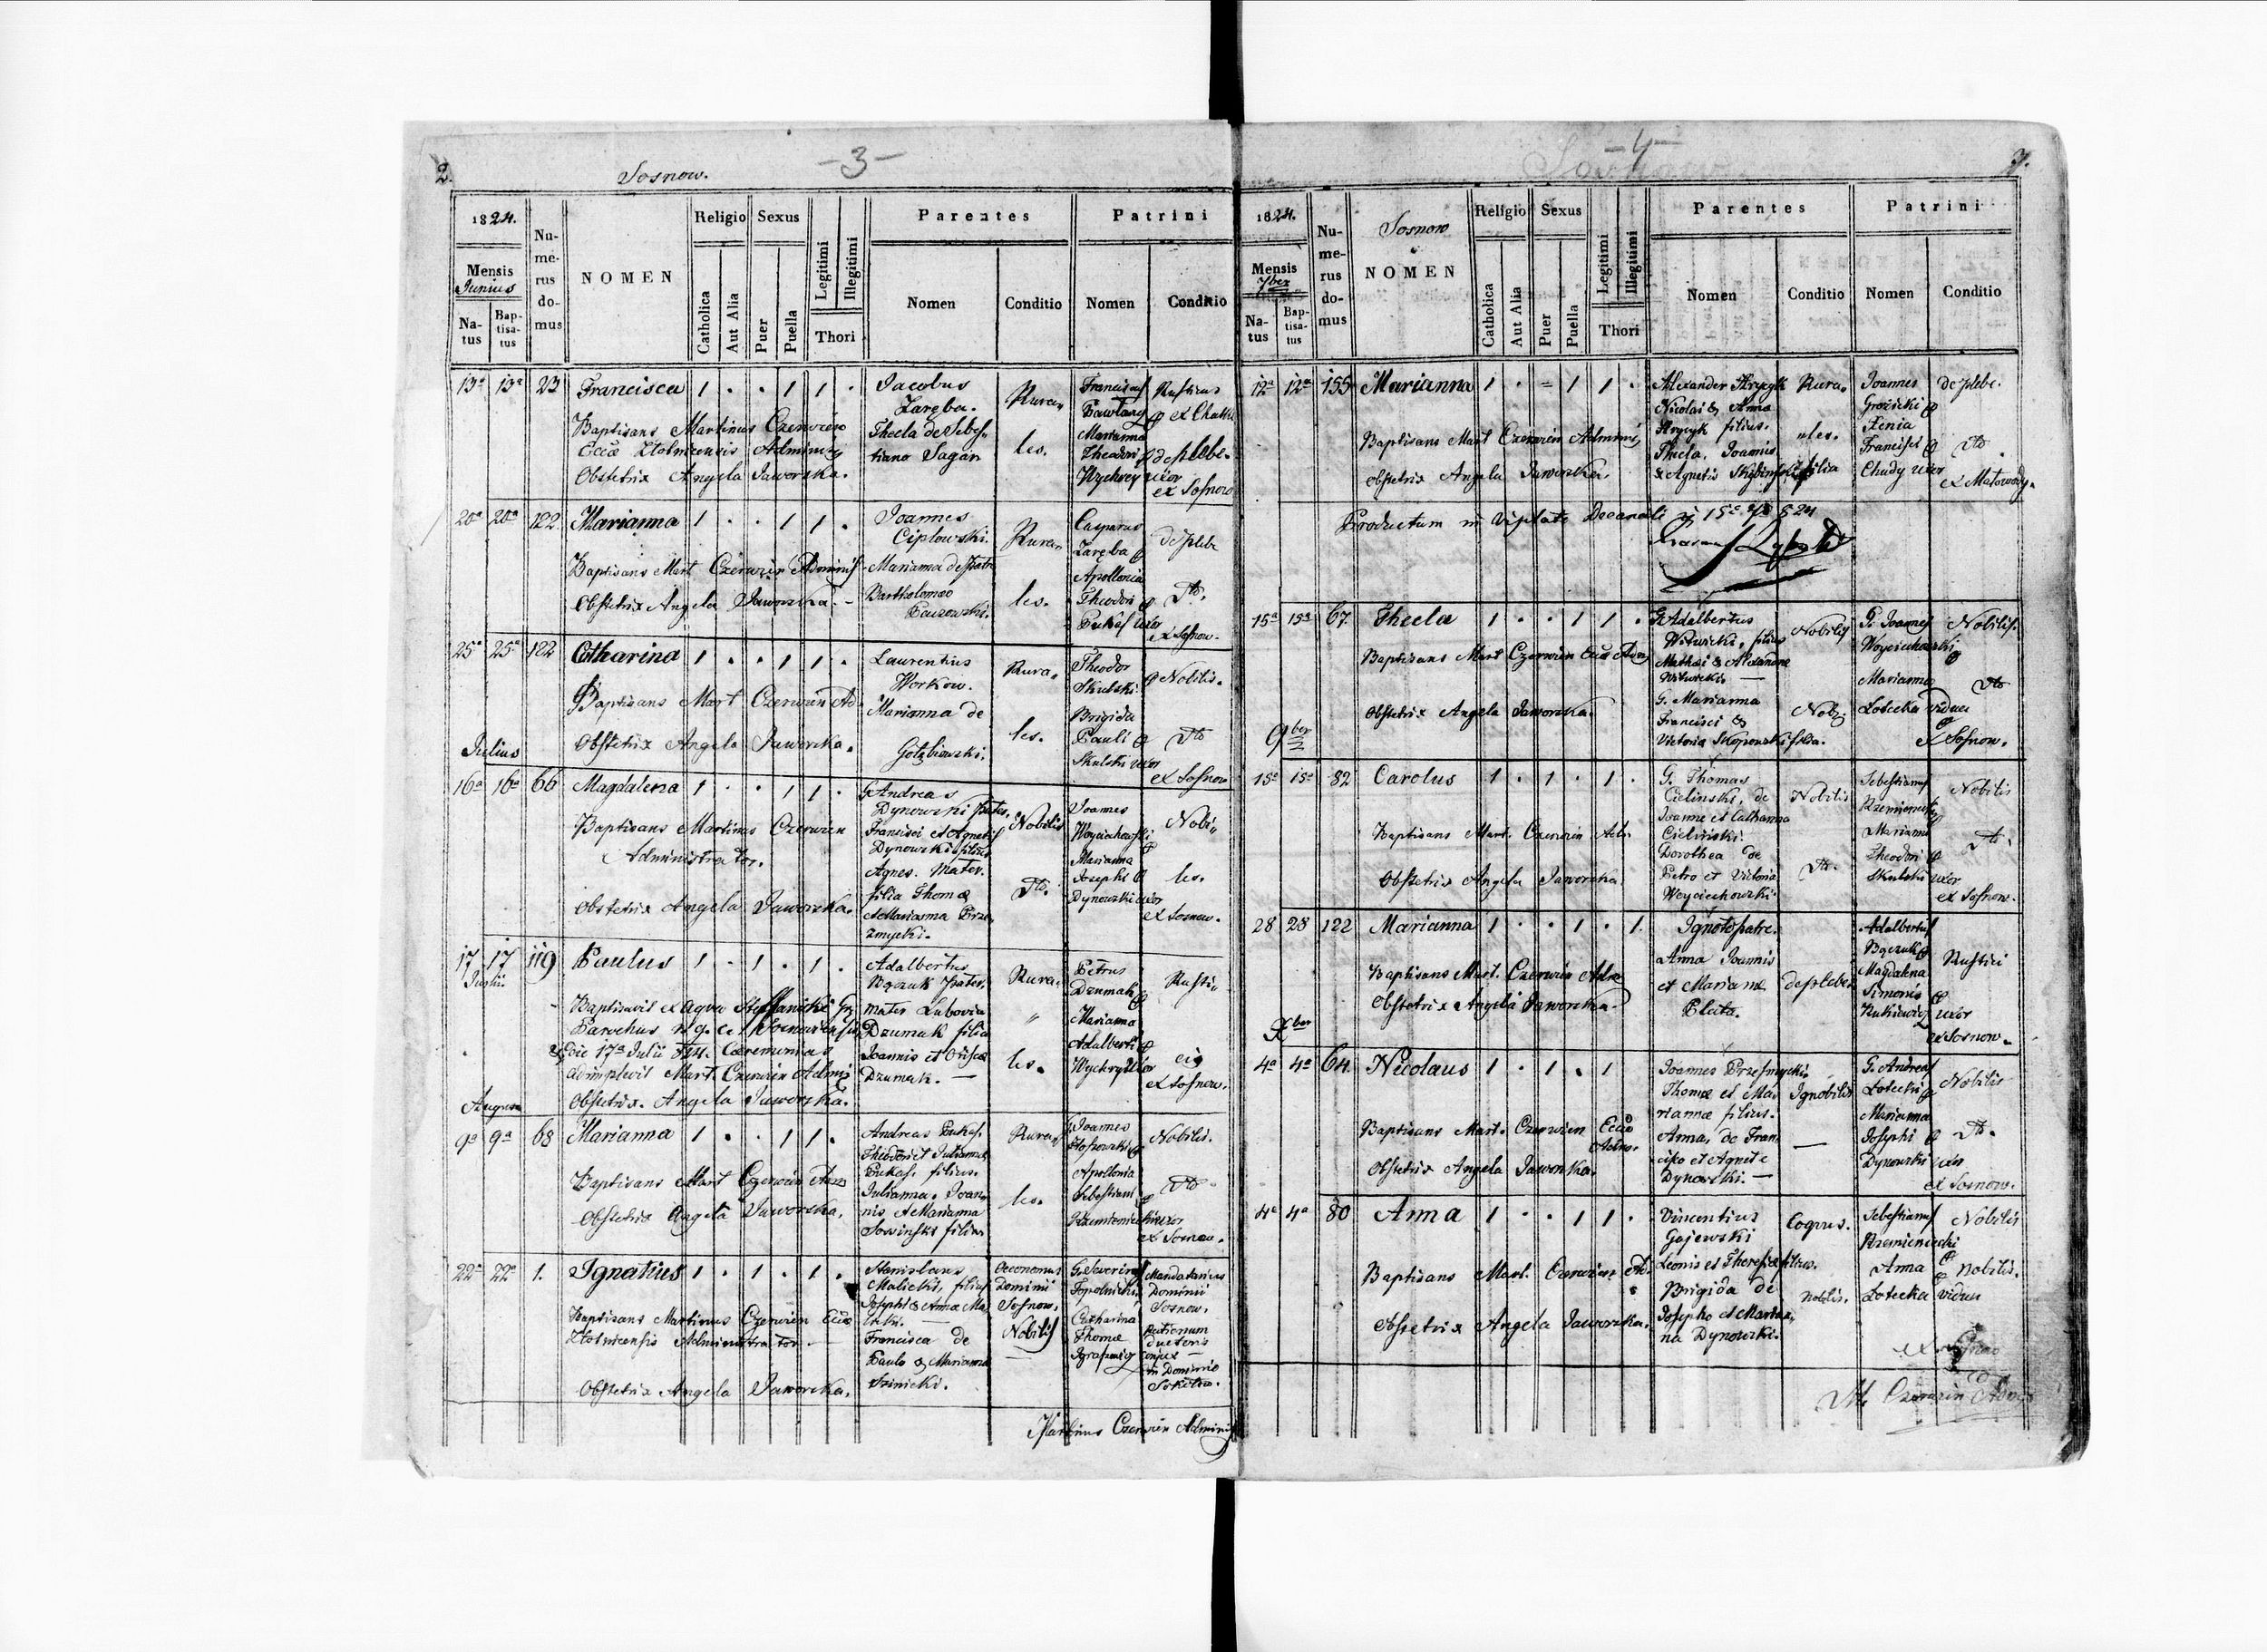 2.
Sosnow.
-3-
1824.
Mensis
Junius
Na-
tus
Bap-
tisa-
tus
Nu-
me-
rus
do-
mus
NOMEN
Religio
Catholica
Aut Alia
Sexus
Puer
Puella
Legitimi
Illegitimi
Thori
Parentes
Nomen
Conditio
Patrini
Nomen
Conditio
13ª 13ª 23 Francisca 1 . . 1 1 .
Baptisans Martinus Czerwien
Eccæ Zlotnicensis Adminis
Obstetrix Angela Jaworska.
Jacobus
Zaręba.
Thecla de Sebes„
tiano Sagan
Rura„
les.
Marianna
Theodori
Wychrey uxor
Rusticus
de plebe.
ex Sosnow
20ª 20ª 122 Marianna 1 . . 1 1 .
Baptisans Mart Czerwien Adminis
Obstetrix Angela Jaworska. -
Joannes
Ciplowski.
Marianna de Patre
Bartholomeo
Rura„
les.
Casparus
Zaręba
Apollonia
Theodori
Pukas uxor
de plebe
Dto.
ex Sosnow.
25ª 25ª 122 Catharina 1 . . 1 1 .
Baptisans Mart Czerwien Ad.
Obstetrix Angela Jaworska.
Laurentius
Workow.
Marianna de
Gołębiowski.
Rura„
les.
Theodor
Skulski
Brigida
Pauli
Skulski uxor
Nobilis.
Dto
ex Sosnow
Julius
16ª 16ª 66 Magdalena 1 . . 1 1 .
Baptisans Martinus Czerwien
Administrator.
Obstetrix Angela Jaworska.
G. Andreas
Dynowski Pater,
Francisci et Agnetis
Dynowski filius
Agnes. Mater.
filia Thomæ
et Marianna Prze„
zmycki.
Nobilis
Dto.
Joannes
Woyciechowski
Marianna
Josephi
Dynowski uxor
Nobi„
les.
ex Sosnow.
17 17 119 Paulus 1 . 1 . 1 .
Julii
Baptisavit ex aqua Steffanicki Gr
Parochus r. g. c. Sosnoviensis
die 17ª Julii Cæremonias
adimplevit Mart. Czerwien Admi
Obstetrix. Angela Jaworska.
Adalbertus
Bączuk Pater.
Mater Lubovia
Dzumak filia
Joannis et
Dzumak. —
Rura„
les.
Petrus
Dzumak
Marianna
Adalberti
Wychrey Uxor
Rusti„
ci
ex Sosnow.
9ª 9ª 68 Marianna 1 . . 1 1 .
Baptisans Mart Czerwien Adm
Obstetrix Angela Jaworska.
Andreas Pukas.
Theodori et Julianna
Pukas. filius.
Julianna. Joan„
nis et Marianna
Sosinski filia
Rura„
les.
Joannes
Apollonia
Sebestiani
Nobilis.
Dto
ex Sosnow.
22ª 22ª 1. Ignatius 1 . 1 . 1 .
Baptisans Martinus Czerwien Eccæ
Zlotnicensis Administrator. —
Obstetrix Angela Jaworska.
Stanislaus
Malicki, filius
Josephi & Annæ Ma„
licki. —
Francisca de
Paulo & Marianna
Oeconomus
Dominii
Sosnow.
Nobilis
—
G. Severinus
Topolnicki,
Catharina
Thomæ
Mandatarius
Dominii
Sosnow.
ductoris
conjux —
in Dominio
Martinus Czerwien Adminis
-4-
3.
1824.
Mensis
7ber
Na-
tus
Bap-
tisa-
tus
Nu-
me-
rus
do-
mus
Sosnow
NOMEN
Religio
Catholica
Aut Alia
Sexus
Puer
Puella
Legitimi
Illegitimi
Thori
Parentes
Nomen
Conditio
Patrini
Nomen
Conditio
12ª 12ª 155 Marianna 1 . = 1 1 .
Baptisans Mart Czerwien Admini
Obstetrix Angela Jaworska.
Alexander Skrycyk
Nicolai & Anna
Skrycyk filius.
Thecla, Joannis
& Agnetis filia
Rura„
les.
Joannes
Grozicki
Xenia
Francisci
Chudy uxor
de plebe.
Dto.
ex Małowody.
Productum in Visitatione Decanali
15ª 15ª 67 Thecla 1 . . 1 1 .
Baptisans Mart Czerwien Eccæ Adm
Obstetrix Angela Jaworska.
G. Adalbertus
Witwicki, filius
Mathæi & Alexandræ
Witwicki —
G. Marianna
Francisci &
Victoria Skopowski filia.
Nobilis
Nob.
G. Joannes
Woyciechowski
Marianna
Lotecka vidua
Nobilis.
Dto
ex Sosnow.
9ber
15ª 15ª 82 Carolus 1 . 1 . 1 .
Baptisans Mart. Czerwien Adm.
Obstetrix Angela Jaworska
G. Thomas
Cielinski, de
Joanne et Catharina
Cielinski.
Dorothea de
Petro et Victoria
Woyciechowski.
Nobilis
Dto.
Sebestianus
Marianna
Theodori
Skulski uxor
Nobilis
Dto.
ex Sosnow.
28 28 122 Marianna 1 . . 1 . 1.
Baptisans Mart. Czerwien Adm
Obstetrix Angela Jaworska
Ignoto patre.
Anna Joannis
et Mariannæ
de plebe
Adalbertus
Bączuk
Magdalena
Simonis
uxor
Rustici
ex Sosnow.
Xber
4ª 4ª 64. Nicolaus 1 . 1 . 1
Baptisans Mart. Czerwien Eccæ
Adm.
Obstetrix Angela Jaworska.
Joannes Przesmycki.
Thomæ et Ma„
riannæ filius.
Anna, de Fran„
cisco et Agnete
Dynowski. —
Ignobilis
—
G. Andreas
Lotecki
Marianna
Josephi
Dynowski uxor
Nobilis
Dto.
ex Sosnow.
4ª 4ª 80 Anna 1 . . 1 1 .
Baptisans Mart. Czerwien Ad.
Obstetrix Angela Jaworska.
Vincentius
Gajewski
Leonis et Theresiæ filius.
Brigida de
Josepho et Marian„
na Dynowski.
Coquus.
Nobilis.
Sebestianus
Krzemieniecki
Anna
Lotecka vidua
Nobilis
Nobilis.
M. Czerwien